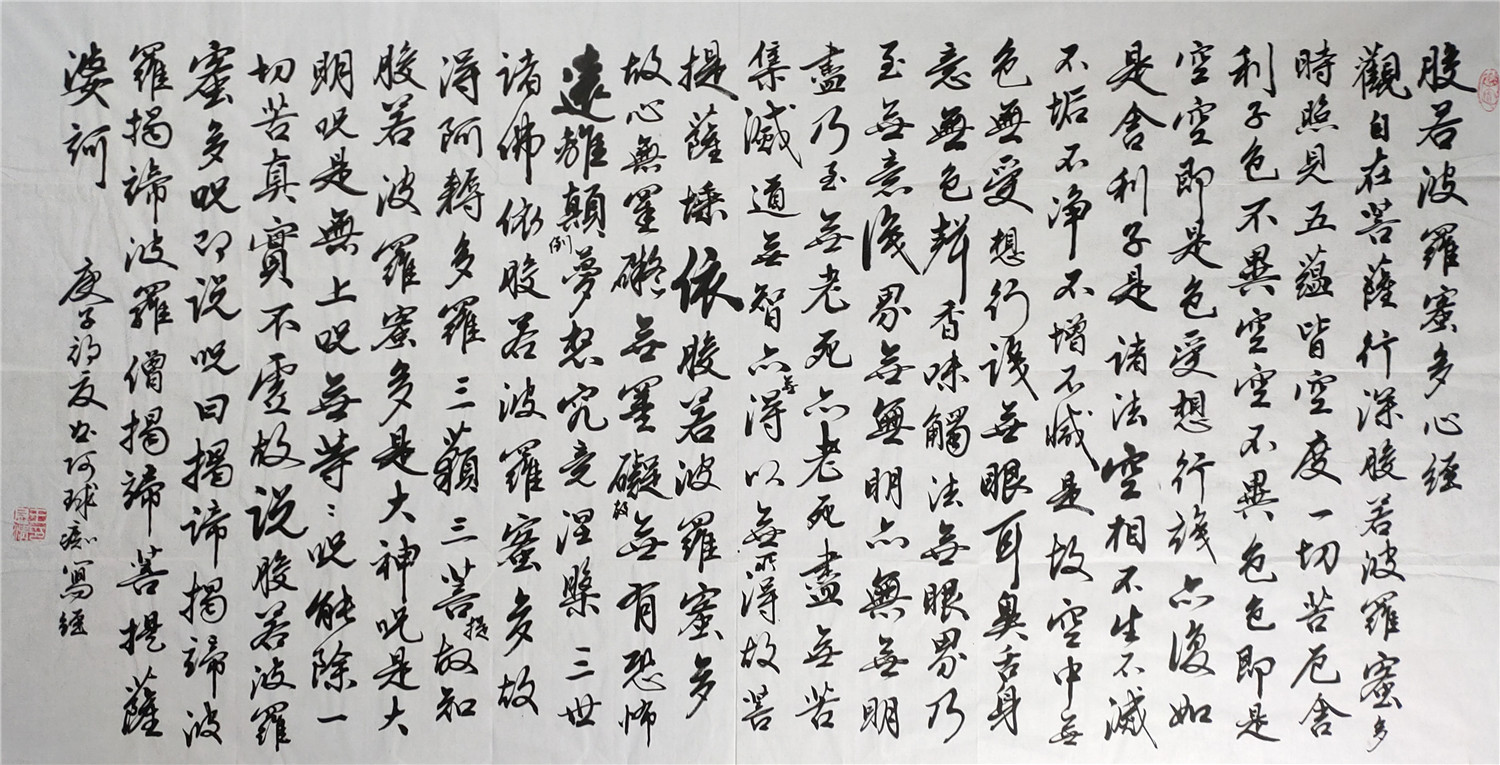 般若波羅蜜多心經
觀自在菩薩行深般若波羅蜜多
時照見五蘊皆空度一切苦厄舍
利子色不異空空不異色色即是
空空即是色受想行識亦復如
是舍利子是諸法空相不生不滅
不垢不净不增不減是故空中無
色無受想行識無眼耳鼻舌身
意無色聲香味觸法無眼界乃
至無意識界無無明亦無無明
盡乃至無老死亦老死盡無苦
集滅道無智亦無得以無所得故菩
提薩埵依般若波羅蜜多
故心無罣礙無罣礙故無有恐怖
遠離顛倒夢想究竟涅槃三世
諸佛依般若波羅蜜多故
得阿耨多羅三藐三菩提故知
般若波羅蜜多是大神咒是大
明咒是無上咒無等〻咒能除一
切苦真實不虛故说般若波羅
蜜多咒即说咒曰揭諦揭諦波
羅揭諦波羅僧揭諦菩提薩
婆訶 庚子初夏 球痴寫經